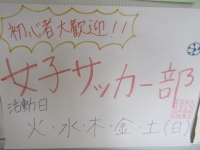 初心者大歓迎!!
女子サッカー部
活動日
火・水・木・金・土(日)